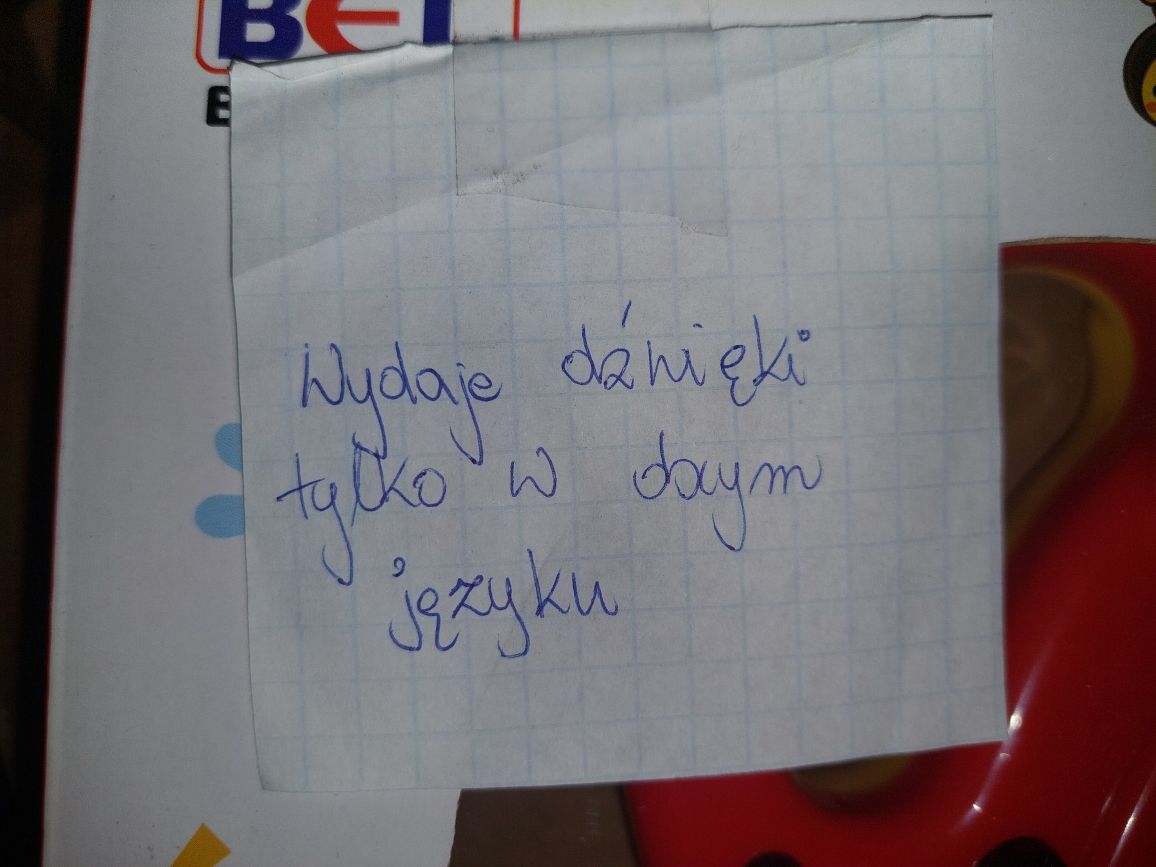 BEI
Wydaje dźwięki
tylko w daym
języku